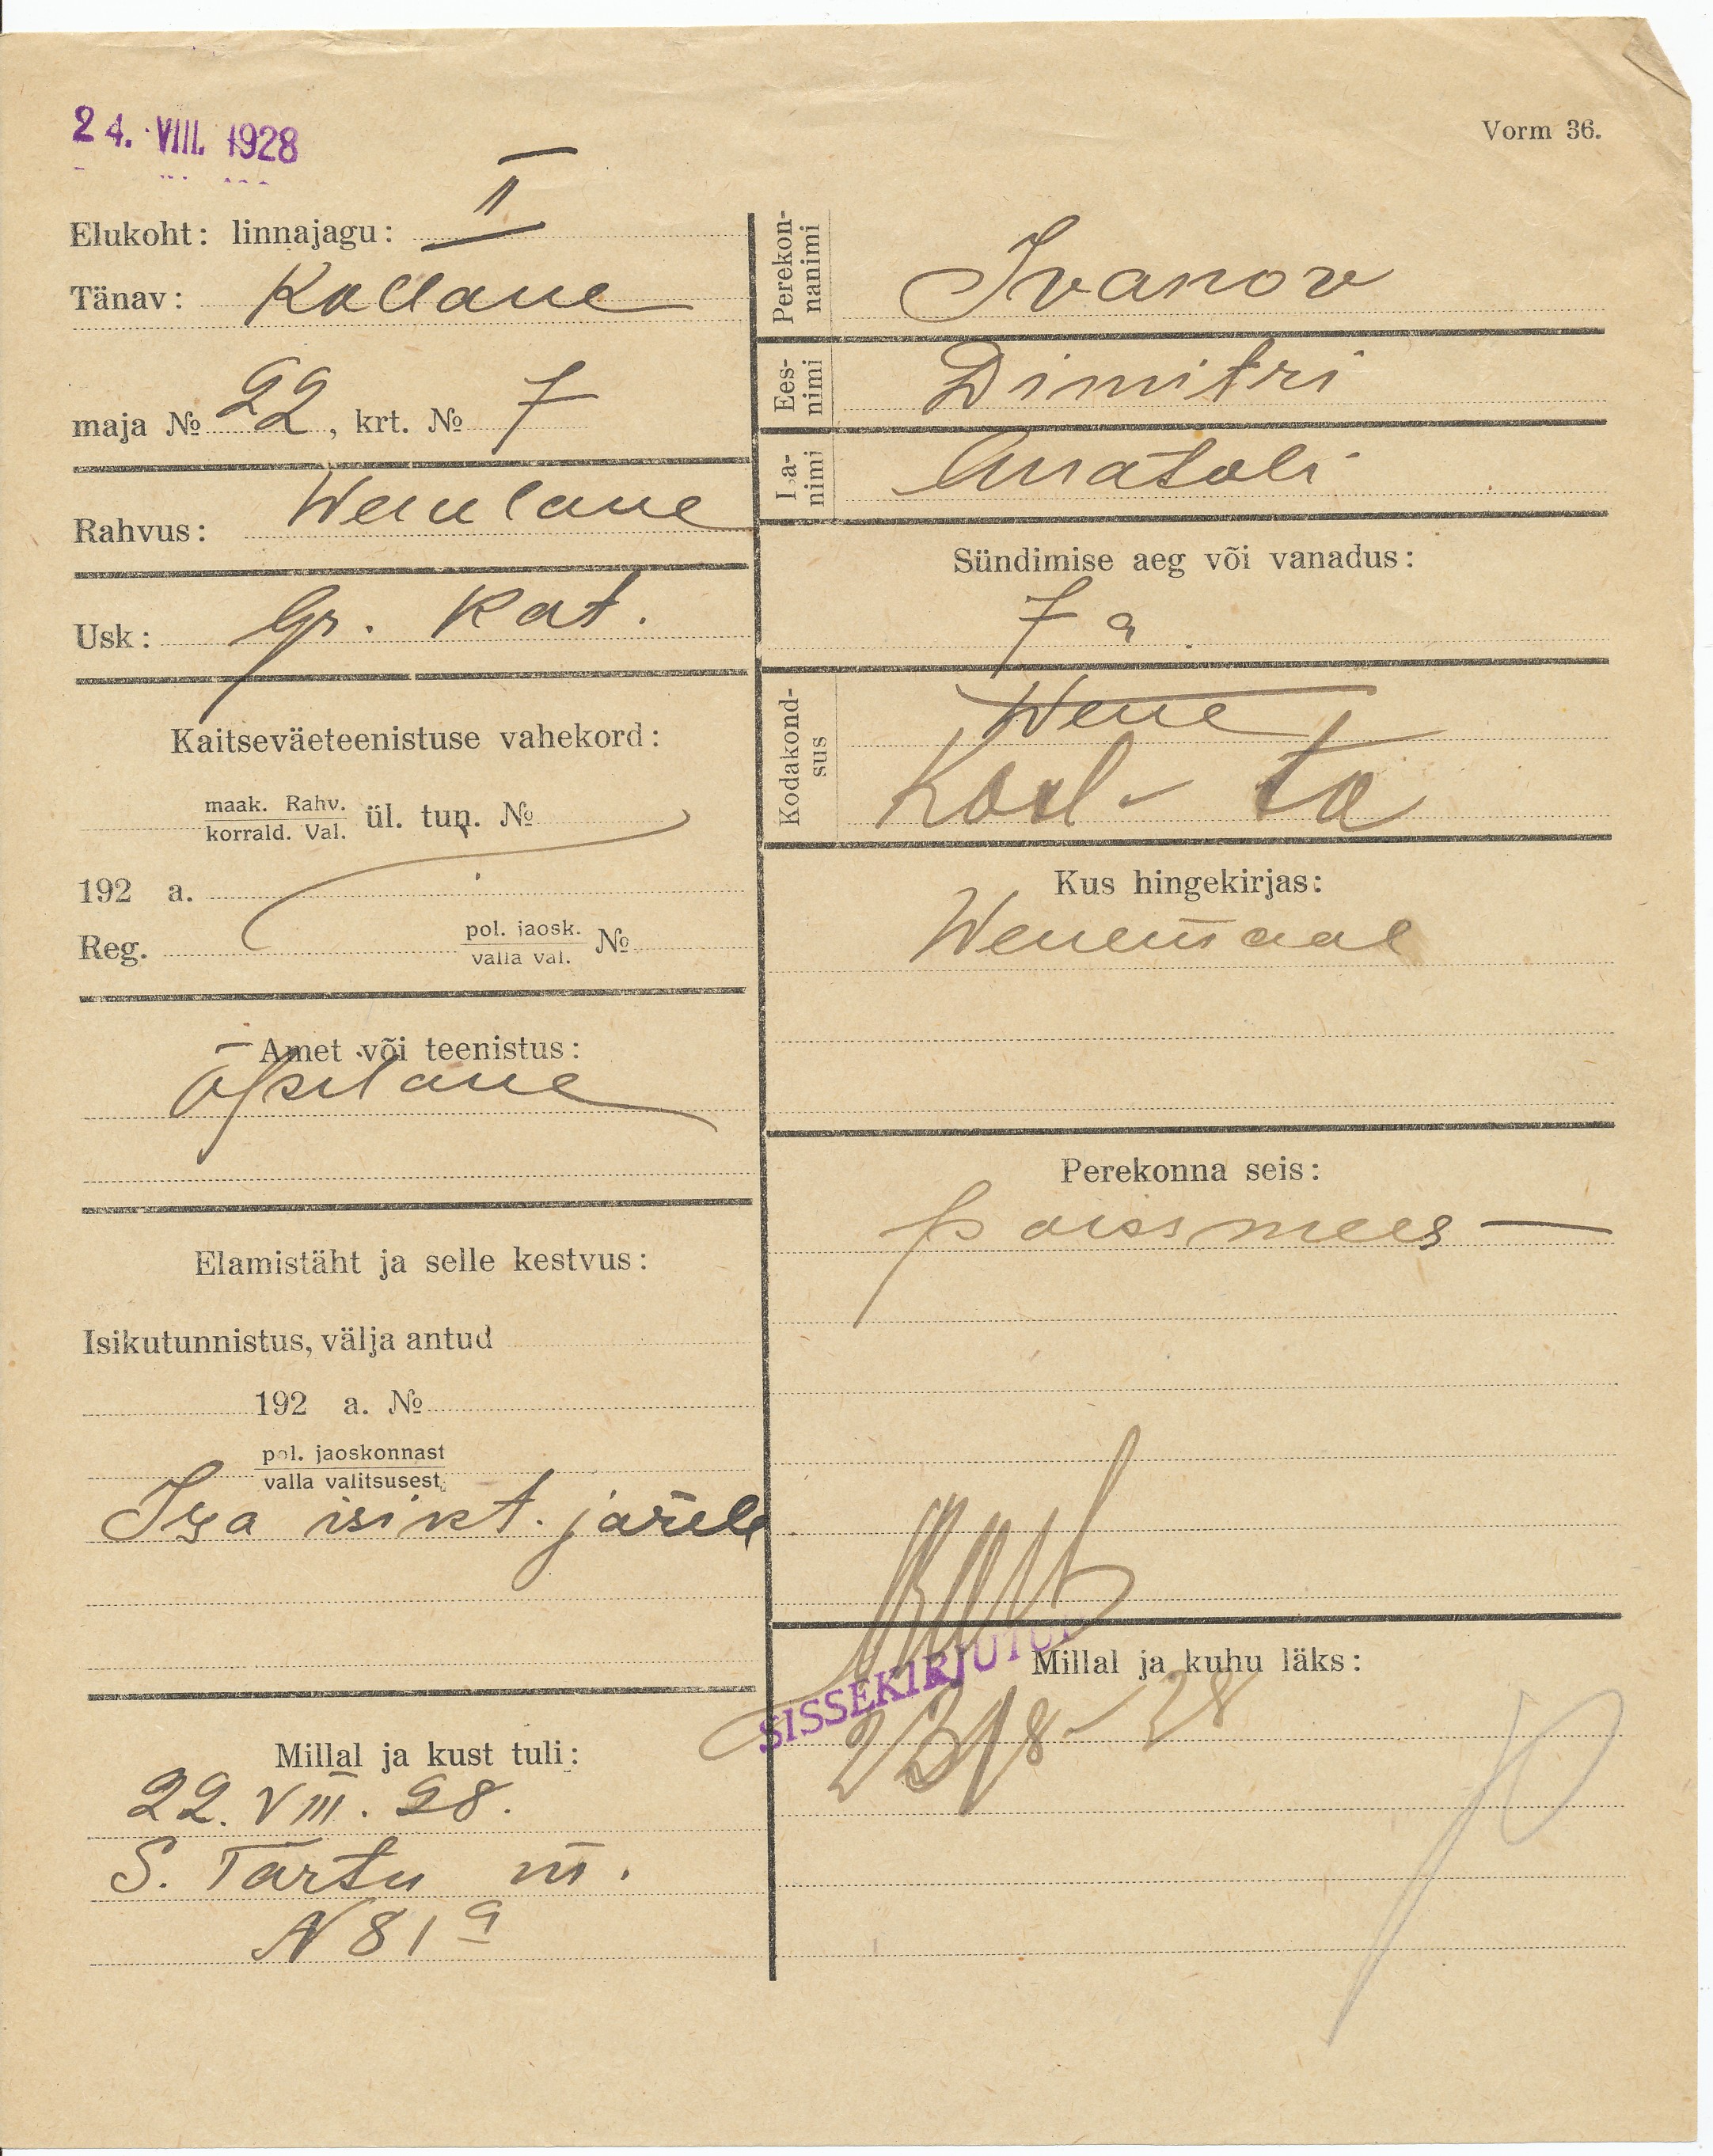 24. VIII. 1928
Vorm 36.
Elukoht: linnajagu: II
Tänav: Kollane
maja № 22, krt. № 7
Rahvus: Wenelane
Usk: Gr. Kat.
Kaitseväeteenistuse vahekord:
maak. Rahv.
korrald. Val. ül. tun. №
192 a.
Reg. pol. jaosk.
valla val. №
Amet või teenistus:
õpilane
Elamistäht ja selle kestvus:
Isikutunnistus, välja antud
192 a. №
pol. jaoskonnast
valla valitsusest
Isa isikt. järele
Millal ja kust tuli:
22. VIII. 28.
S. Tartu m.
N 81 a
Perekon-
nanimi Ivanov
Ees-
nimi Dimitri
Isa-
nimi Anatoli
Sündimise aeg või vanadus:
7 a.
Kodakond-
sus Wene
Kod- ta
Kus hingekirjas:
Wenemaal
Perekonna seis:
poissmees
SISSEKIRJUTUD
Millal ja kuhu läks:
23/8-28